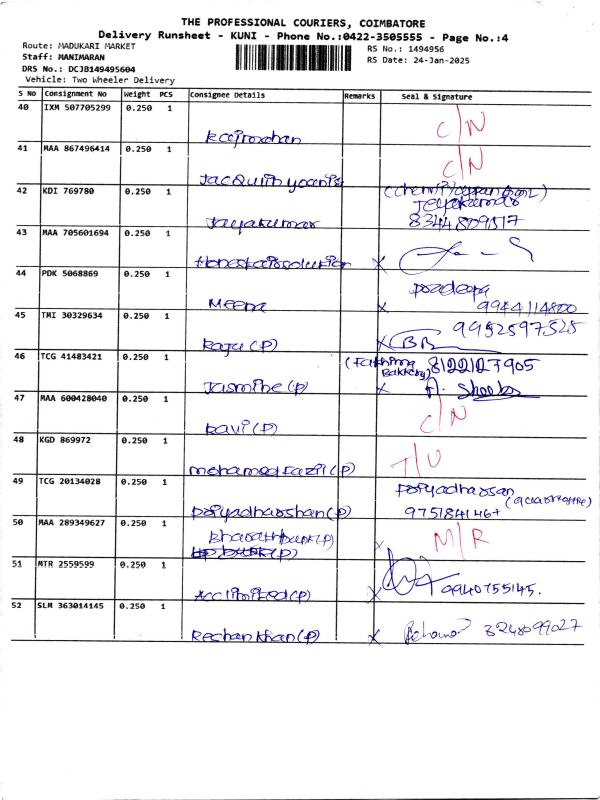 THE PROFESSIONAL COURIERS, COIMBATORE
Delivery Runsheet - KUNI - Phone No.:0422-3505555 - Page No.:4
Route: MADUKARI MARKET
RS No.: 1494956
Staff: MANIMARAN
RS Date: 24-Jan-2025
DRS No.: DCJB149495604
Vehicle: Two Wheeler Delivery
S No Consignment No Weight PCS Consignee Details Remarks Seal & Signature
40 IXM 507705299 0.250 1
Rajmohan C/N
41 MAA 867496414 0.250 1
C/N
42 KDI 769780 0.250 1
Jeyakumar
Jayakumar 8344809517
43 MAA 705601694 0.250 1
X
44 PDK 5068869 0.250 1
Pradeepa
Meena X 9944114800
45 TMI 30329634 0.250 1
9952597525
Raju (P) X
46 TCG 41483421 0.250 1
(Fathima Bakkery) 8122127905
Jasmine (P) X
47 MAA 600428040 0.250 1
Ravi (P) C/N
48 KGD 869972 0.250 1
Mohamed Fazil (P) T/U
49 TCG 20134028 0.250 1
Priyadharsan
Priyadharshan (P) 975184146+
50 MAA 289349627 0.250 1
Bharath bank (P) M/R
X
51 MTR 2559599 0.250 1
Acc limited (P) X 9940755145.
52 SLM 363014145 0.250 1
Rechan khan (P) X 8248099027